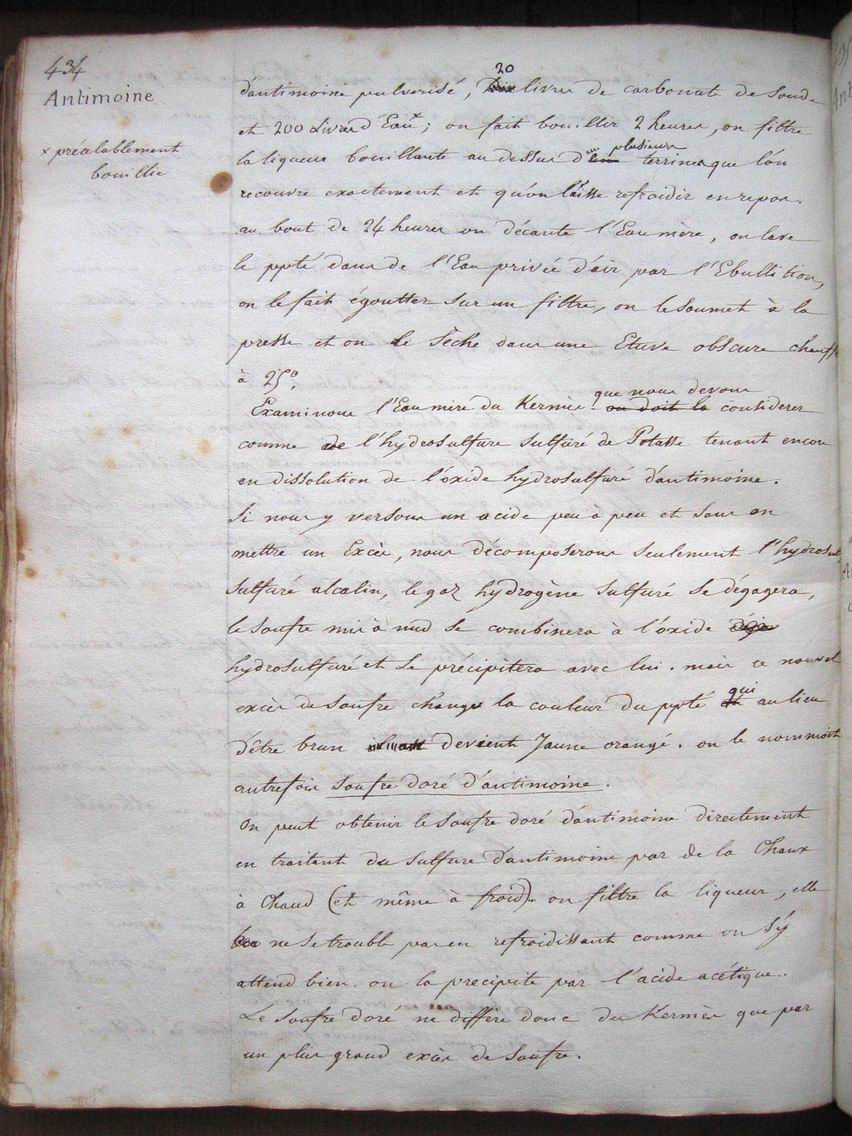 434
Antimoine
x préalablement
bouillie
20
d'antimoine pulverisé, Dix livres de carbonate de Soude
et 200 Livres d'Eau x; on fait bouillir 2 heures, on filtre
plusieurs
la liqueur bouillante au dessus d'un terrines que l'on
recouvre exactement et qu'on laisse refroidir en repos.
au bout de 24 heures on décante l'Eau mère, on lave
le ppté dans de l'Eau privée d'air par l'Ebullition,
on le fait égoutter sur un filtre, on le Soumet à la
presse et on le Sèche dans une Etuve obscure chauffé
à 25°.
que nous devons
Examinons l'Eau mère du Kermès! on doit la considerer
comme de l'hydrosulfure sulfuré de Potasse tenant encore
en dissolution de l'óxide hydrosulfuré d'antimoine.
Si nous y versons un acide peu à peu et sans en
mettre un Excès, nous décomposerons seulement l'hydrosulf
sulfuré alcalin, le gaz hydrogène sulfuré se dégagera,
le Soufre mis à nud se combinera à l'óxide déja
hydrosulfuré et se précipitera avec lui. mais ce nouvel
qui
excès de Soufre change la couleur du ppté et au lieu
d'être brun devient Jaune orangé. on le nommoit
autrefois soufre doré d'antimoine.
On peut obtenir le Soufre doré d'antimoine directement
en traitant du Sulfure d'antimoine par de la Chaux
à Chaud (et même à froid). on filtre la liqueur, elle
ne se trouble pas en refroidissant comme on s'y
attend bien. on la precipite par l'acide acétique..
Le Soufre doré ne diffère donc du Kermès que par
un plus grand excès de Soufre.